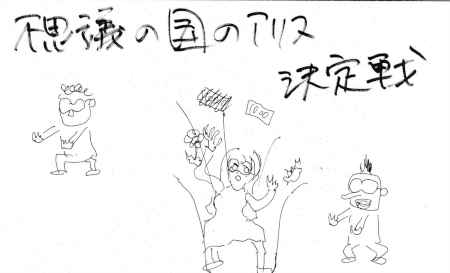 不思議の国のアリス
決定戦
1000